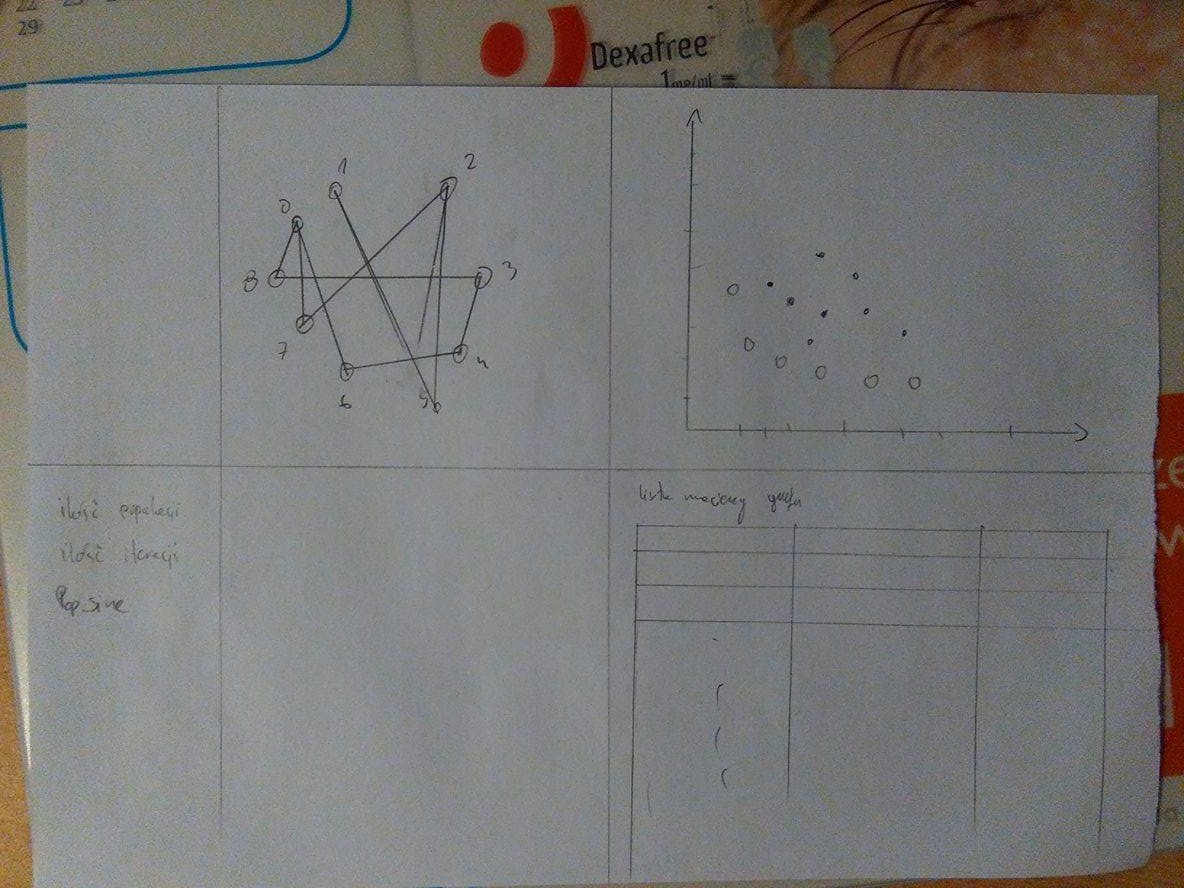 29
Dexafree
1 mg/ml =
1
2
0
8
3
7
4
6
5
ilość populacji
ilość iteracji
Pop_sine
lista macierzy grafu